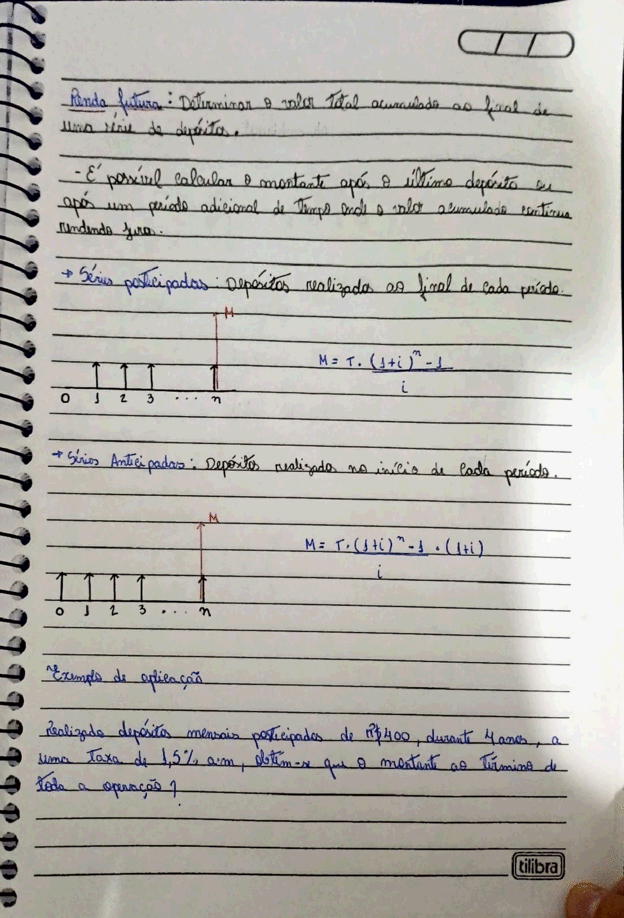 Renda futura: Determinar o valor total acumulado ao final de
uma série de depósitos.
- É possível calcular o montante após o último depósito ou
após um período adicional de tempo onde o valor acumulado continua
rendendo juro.
→ Séries postecipadas: Depósitos realizados ao final de cada período.
M
M = T. (1+i)^n - 1
i
0 1 2 3 ... n
→ Séries Antecipadas: Depósitos realizados no início de cada período.
M
M = T. (1+i)^n - 1 . (1+i)
i
0 1 2 3 .... n
Exemplo de aplicação
Realizado depósitos mensais postecipados de R$400, durante 4 anos, a
uma taxa de 1,5% a.m, obtém-se que o montante ao término de
toda a operação?
tilibra